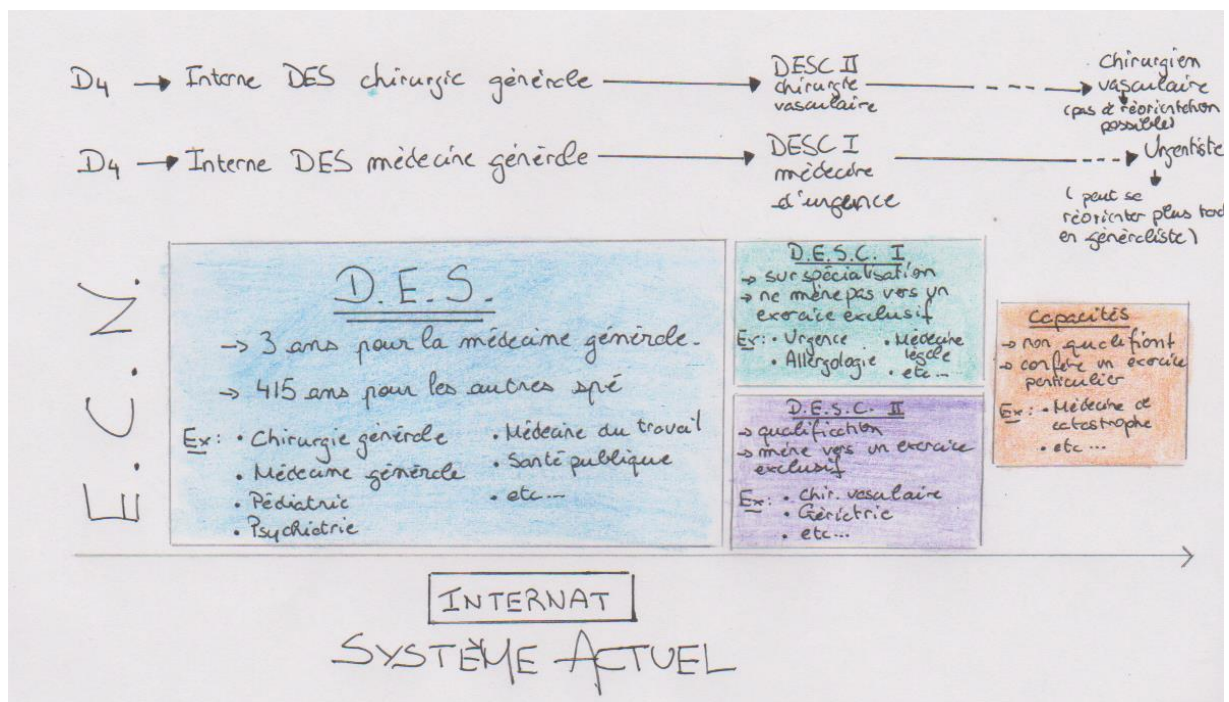 D4 → Interne DES chirurgie générale → DESC II
chirurgie
vasculaire
Chirurgien
vasculaire
(pas de réorientation
possible)
D4 → Interne DES médecine générale → DESC I
médecine
d'urgence
Urgentiste
(peut se
réorienter plus tard
en généraliste)
E.C.N.
D.E.S.
→ 3 ans pour la médecine générale.
→ 4/5 ans pour les autres spé
Ex: • Chirurgie générale
• Médecine générale
• Pédiatrie
• Psychiatrie
• Médecine du travail
• Santé publique
• etc...
D.E.S.C. I
→ sur spécialisation
→ ne mène pas vers un
exercice exclusif
Ex: • Urgence
• Allergologie
• Médecine
légale
• etc...
D.E.S.C. II
→ qualification
→ mène vers un exercice
exclusif
Ex: • Chir. vasculaire
• Gériatrie
• etc...
Capacités
→ non qualifiant
→ confère un exercice
particulier
Ex: • Médecine de
catastrophe
• etc...
INTERNAT
SYSTÈME ACTUEL